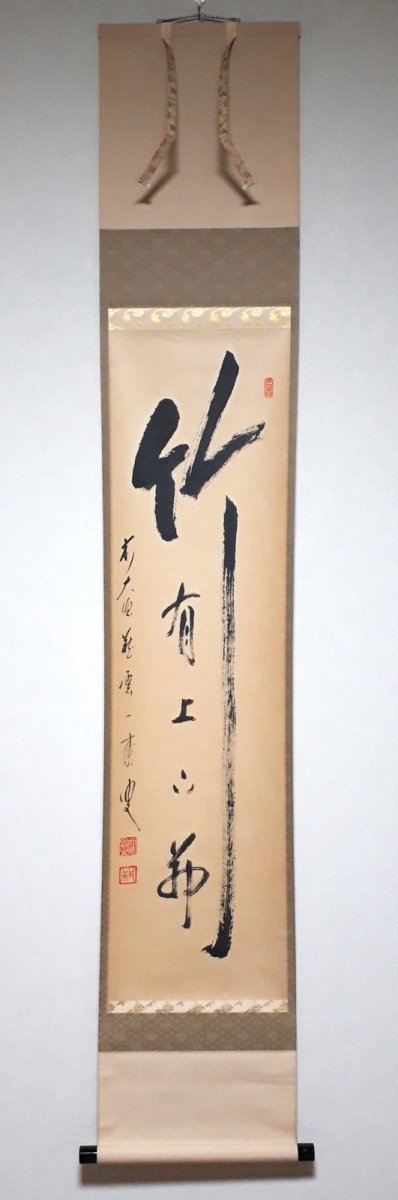 竹有上下節
前大徳雲一青叟